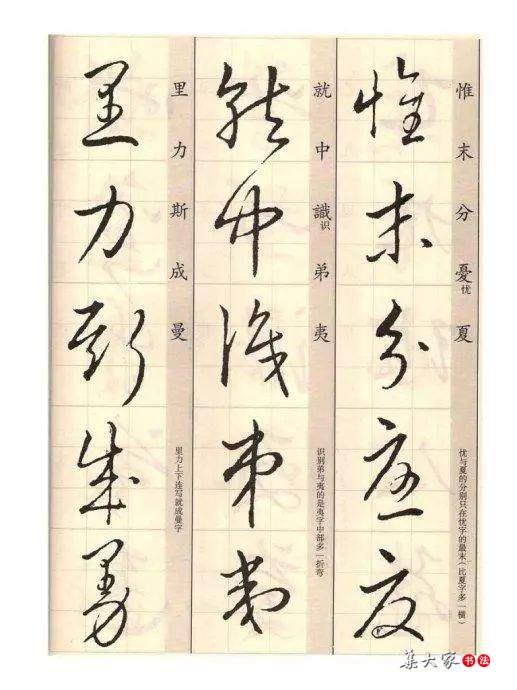 惟末分憂忧夏
惟末分憂夏
忧与夏的分别只在忧字的最末(比夏字多一横)
就中識识弟夷
就中識弟夷
识别弟与夷的是夷字中部多一折弯
里力斯成曼
里力斯成曼
里力上下连写就成曼字
集大家书法